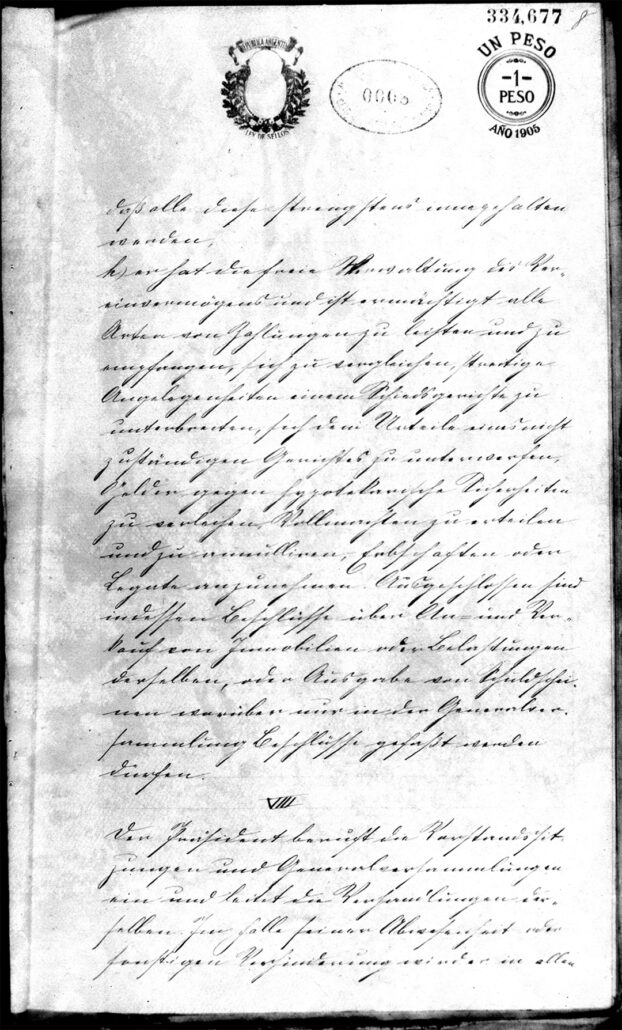 334,677
8
REPUBLICA ARGENTINA
LEY DE SELLOS
0003
UN PESO
-1-
PESO
AÑO 1905
daß alle diese strengstens innegehalten
werden,
k) er hat die freie Verwaltung des Ver-
einvermögens und ist ermächtigt alle
Arten von Zahlungen zu leisten und zu
empfangen, sich zu vergleichen, streitige
Angelegenheiten einem Schiedsgerichte zu
unterbreiten, sich dem Urteile eines nicht
zuständigen Gerichtes zu unterwerfen,
Gelder gegen hypotekarische Sicherheiten
zu verleihen, Vollmachten zu erteilen
und zu annulliren, Erbschaften oder
Legate anzunehmen. Ausgeschlossen sind
indessen Beschlüsse über An- und Ver-
kauf von Immobilien oder Belastungen
derselben, oder Ausgabe von Schuldschei-
nen worüber nur in der Generalver-
sammlung Beschlüsse gefaßt werden
dürfen.
VIII
Der Präsident beruft die Vorstandssit-
zungen und Generalversammlungen
ein und leitet die Verhandlungen der-
selben. Im Falle seiner Abwesenheit oder
sonstigen Verhinderung wird er in allen